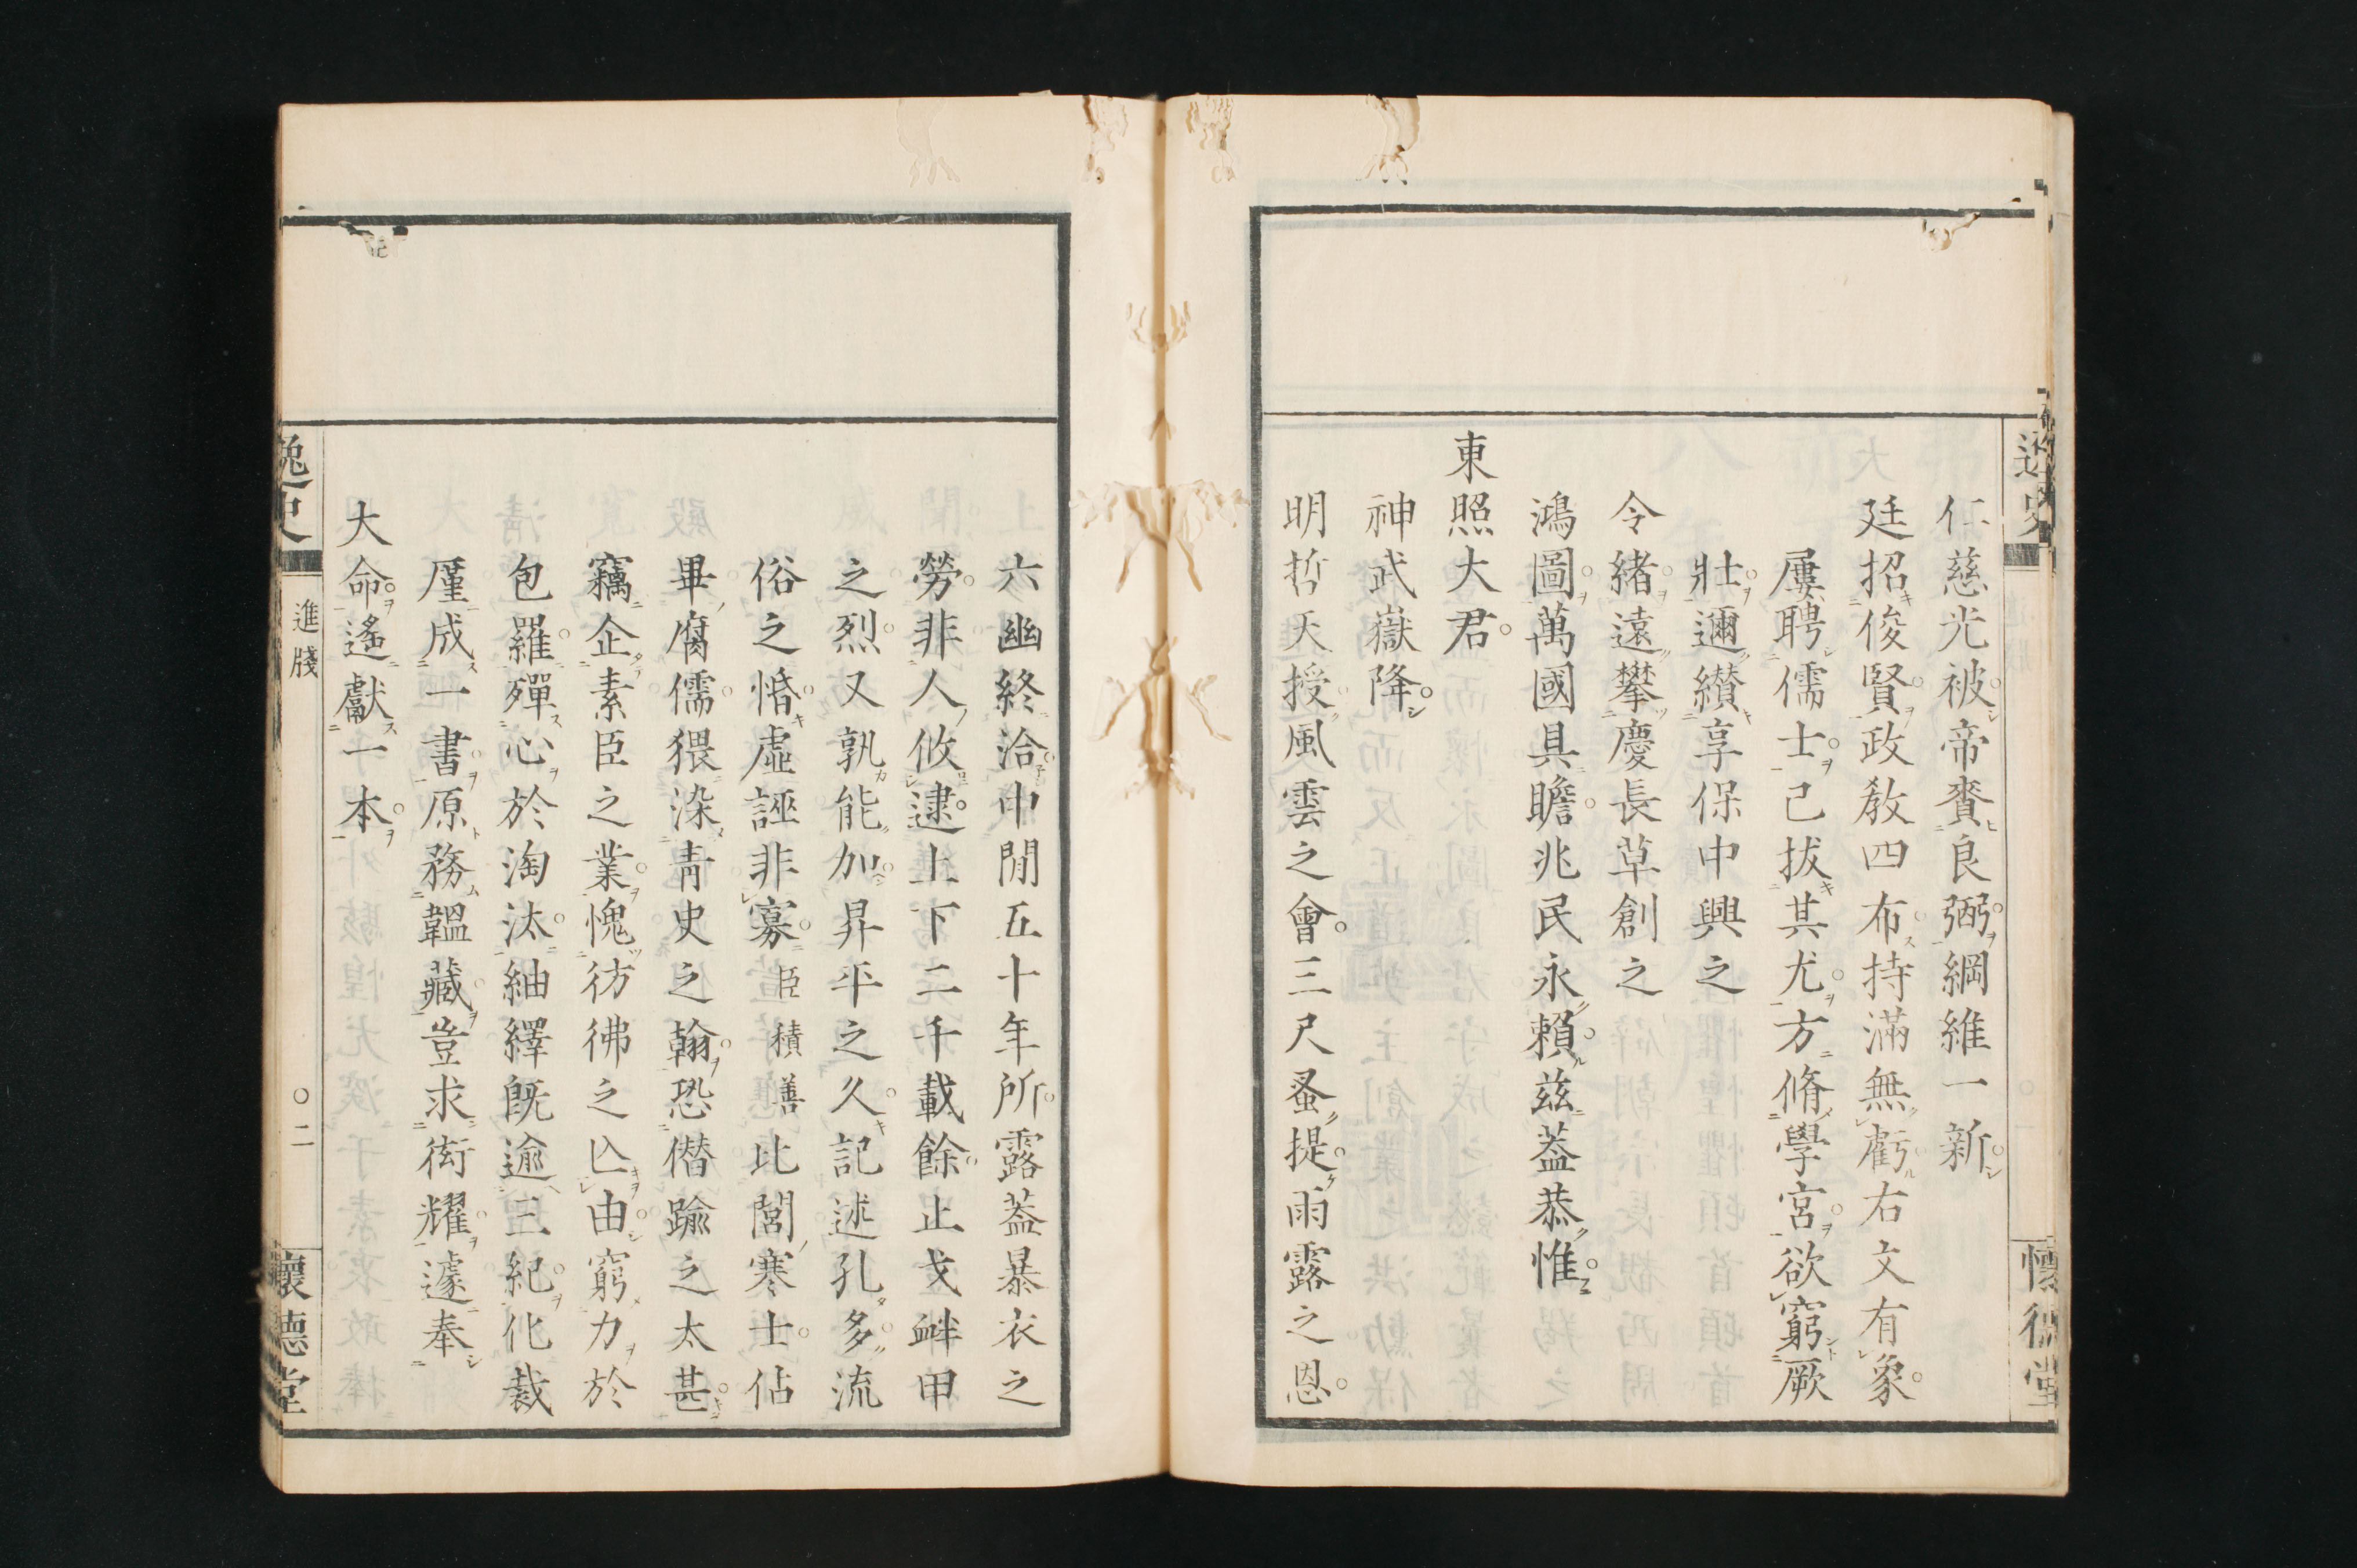 仁慈光被帝賚良弼綱維一新
廷招俊賢政教四布持滿無虧右文有象
屢聘儒士己拔其尤方脩學宮欲窮厥
壯邇纘享保中興之
令緒遠攀慶長草創之
鴻圖萬國具瞻兆民永賴茲蓋恭惟
東照大君
神武嶽降
明哲天授風雲之會三尺蚤提雨露之恩
六幽終洽中間五十年所露蓋暴衣之
勞非人攸逮上下二千載餘止戈衅甲
之烈又孰能加昇平之久記述孔多流
俗之惛虛誣非寡臣積善比閭寒士佔
畢腐儒猥染青史之翰恐僭踰之太甚
竊企素臣之業愧彷彿之亾由窮力於
包羅殫心於淘汰紬繹既逾三紀化裁
厪成一書原務韞藏豈求衒耀遽奉
大命遙獻一本
逸史
進牋
〇二
懷德堂